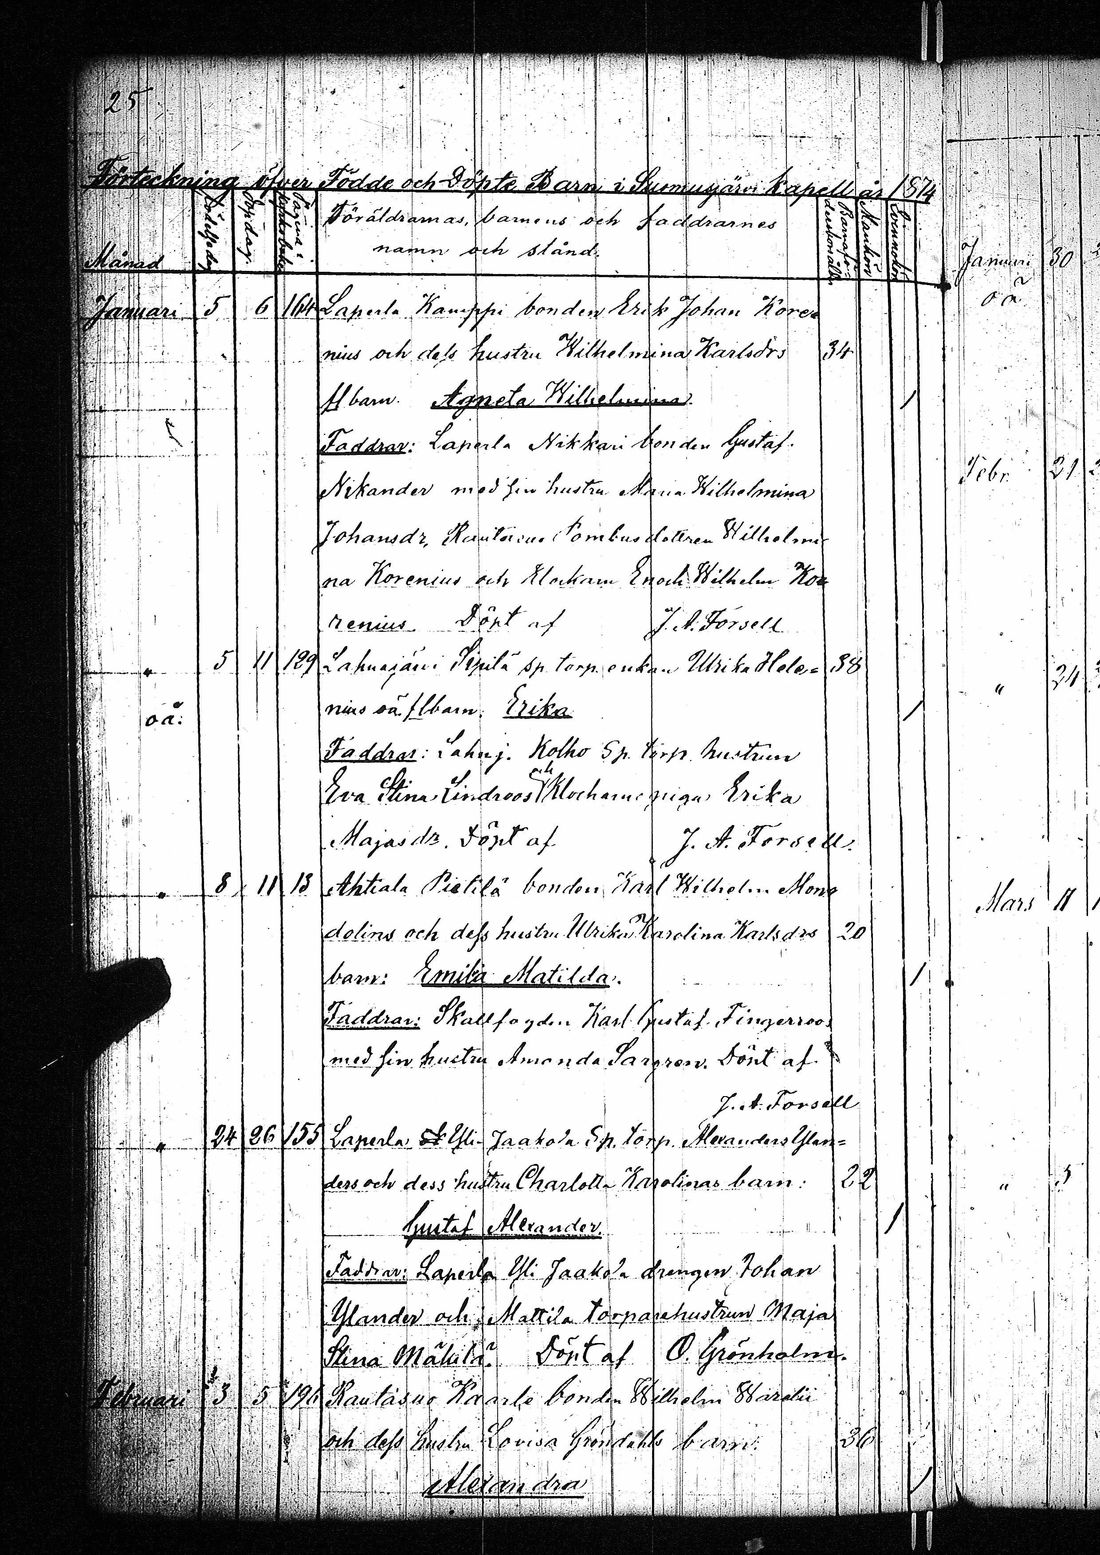 25
Förteckning öfver Födde och Döpte Barn i Suomusjärvi kapell år 1874
Månad Födelsedag Dopdag Pagina i Föräldrarnas, barnens och faddrarnes Mankön Qvinnokön
namn och stånd.
Januari 5 6 164 Laperla Kamppi bonden Erik Johan Kore=
nius och dess hustru Wilhelmina Karlsdrs 34
flbarn. Agneta Wilhelmina. 1
Faddrar: Laperla Nikkari bonden Gustaf
Nikander med sin hustru Maria Wilhelmina
Johansdr, Rautsuo dottren Wilhelmi-
na Korenius och Klockarn Enoch Wilhelm Ko=
renius. Döpt af J. A. Forsell
" 5 11 129 Lahnajärvi Sipilä sp. torp. enkan Ulrika Hele= 38
oä. nius oä. flbarn: Erika 1
Faddrar: Lahnj. Kolho Sp. torp. hustrun
Eva Stina Lindroos och Klockarnes pigan Erika
Majasdr. Döpt af J. A. Forsell.
" 8 11 13 Ahtiala Pietilä bonden Karl Wilhelm Man=
dolins och dess hustru Ulrika Karolina Karlsdrs 20
barn: Emilia Matilda. 1
Faddrar: Skallfogden Karl Gustaf Fingerroos
med sin hustru Amanda Sargren. Döpt af
J. A. Forsell
" 24 26 155 Laperla Yli-Jaakola Sp. torp. Alexanders Ylan=
ders och dess hustru Charlotta Karolinas barn: 22
Gustaf Alexander. 1
Faddrar: Laperla Yli Jaakola drengen Johan
Ylander och Mattila torparehustrun Maja
Stina Mäkilä. Döpt af O. Grönholm.
Februari 3 5 196 Rautasuo Kaarlo bonden Wilhelm
och dess hustru Lovisa Gröndahls barn: 36
Alexandra 1
Januari 30
oä
Febr. 21
" 24
Mars 11
" 5